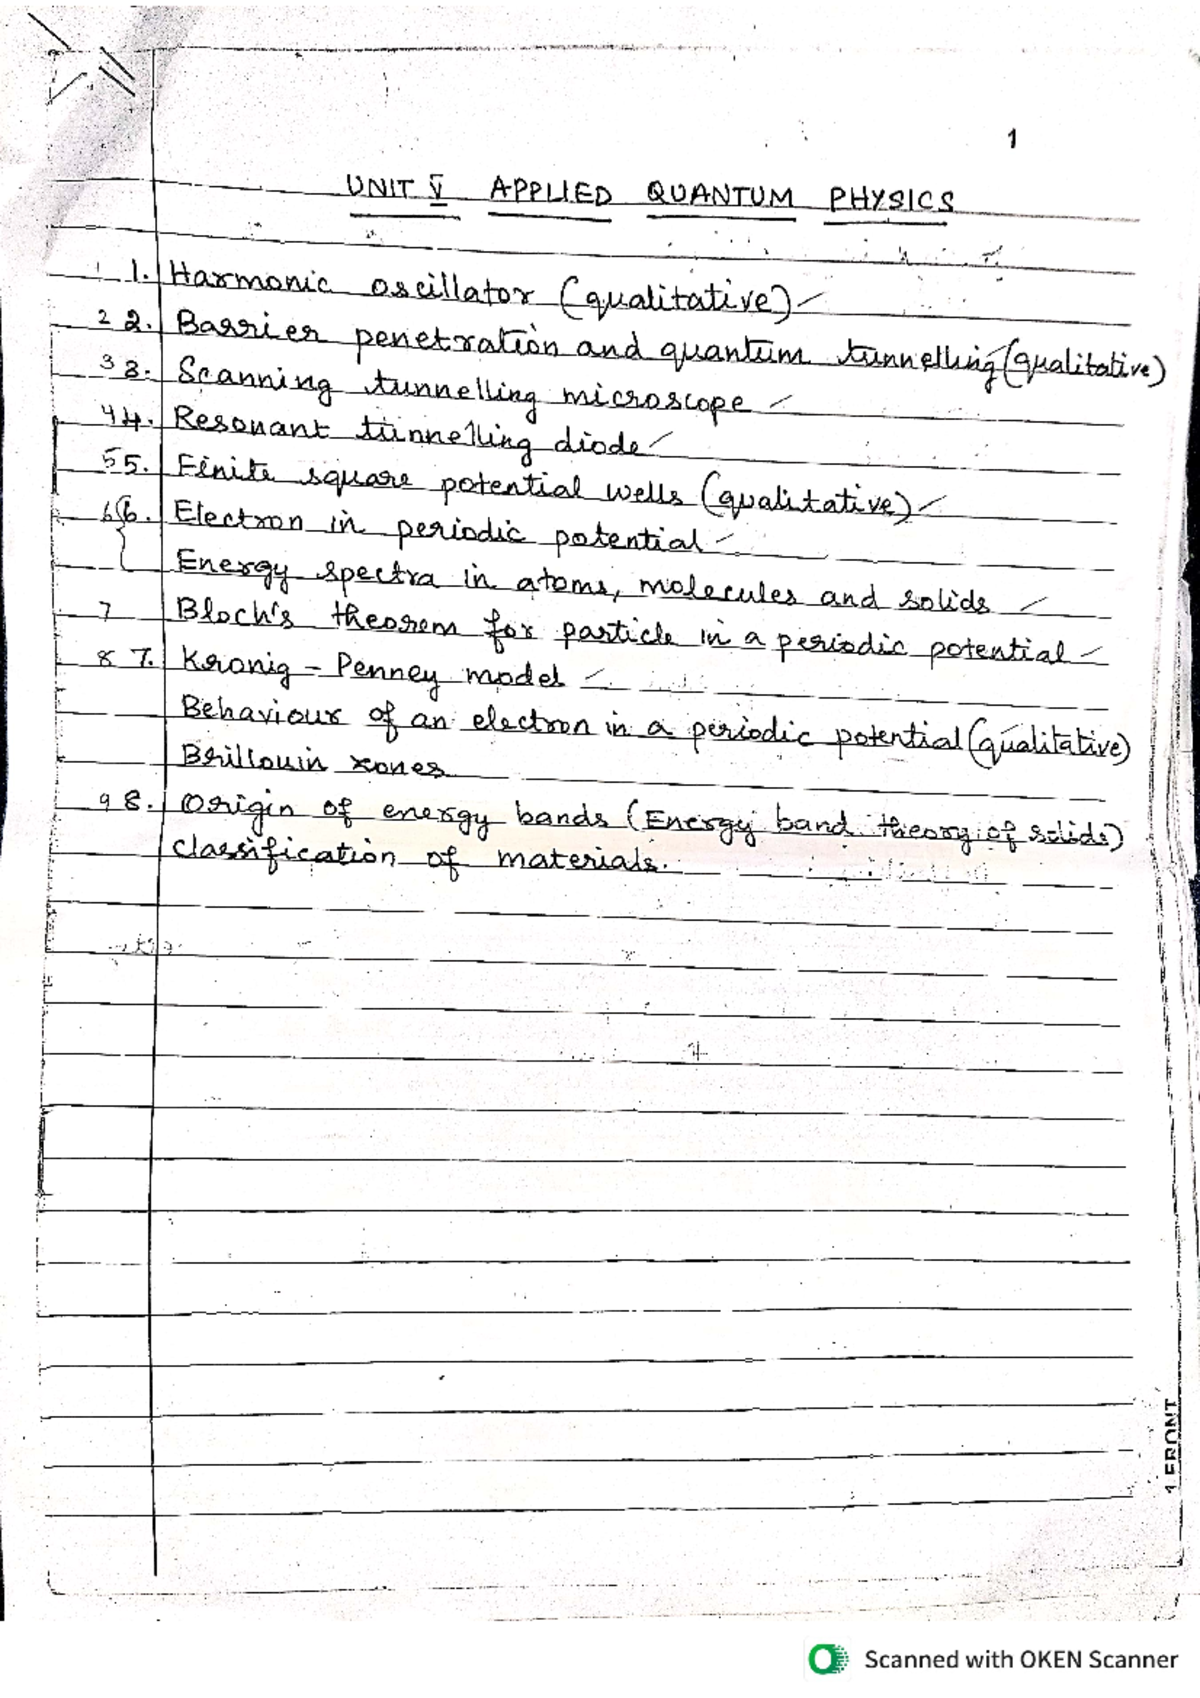 1
UNIT V APPLIED QUANTUM PHYSICS
1 1. Harmonic oscillator (qualitative)
2 2. Barrier penetration and quantum tunnelling (qualitative)
3 3. Scanning tunnelling microscope
4 4. Resonant tunnelling diode
5 5. Finite square potential wells (qualitative)
6 6. Electron in periodic potential
Energy spectra in atoms, molecules and solids
7 Bloch's theorem for particle in a periodic potential
8 7. Kronig - Penney model
Behaviour of an electron in a periodic potential (qualitative)
Brillouin zones
9 8. Origin of energy bands (Energy band theory of solids)
classification of materials.
1 FRONT
Scanned with OKEN Scanner